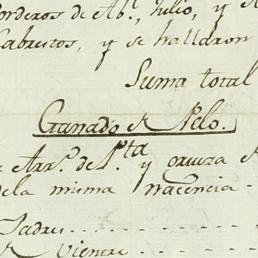 orderos de Ab.l, Julio, y
Cabritos, y se hallaron
Suma total
Ganado de Pelo.
Arr.s de P.ta y oveza
dela misma nacencia
Padres
de Vientre